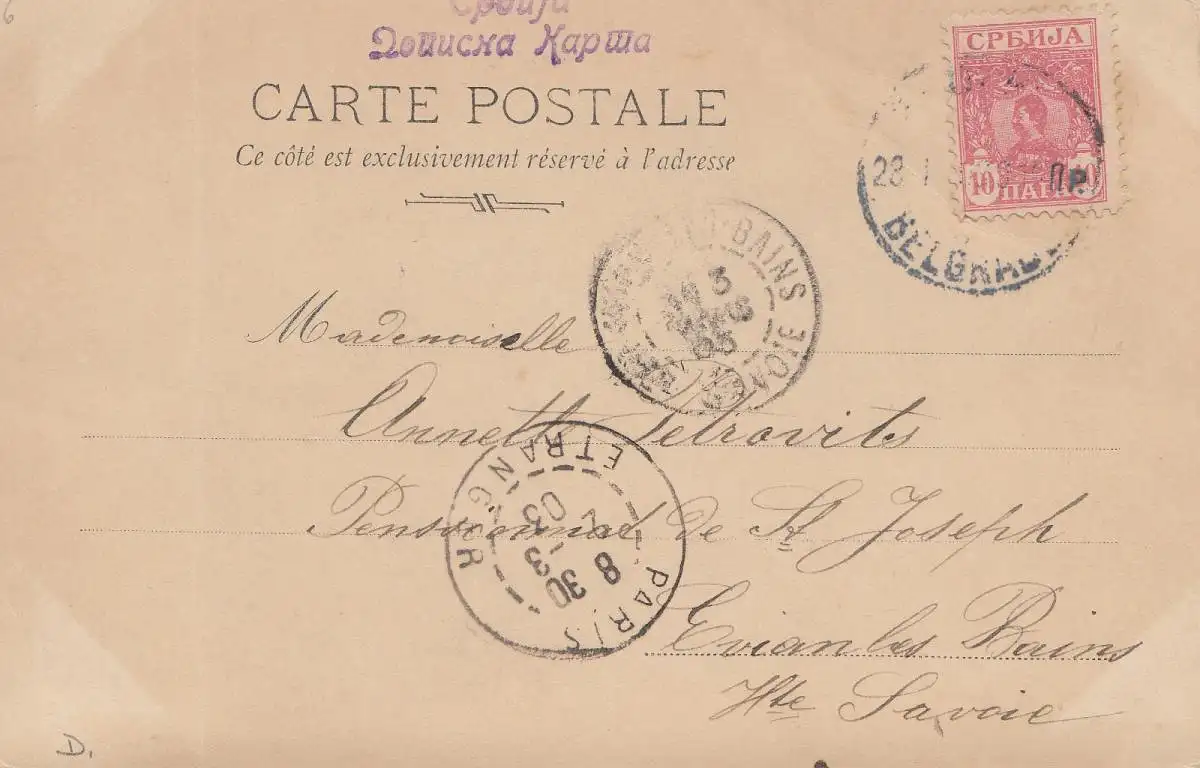 Србија
Дописна Карта
CARTE POSTALE
Ce côté est exclusivement réservé à l'adresse
СРБИЈА
10 ПАРА 10
28 I
ПР.
BELGRADE
BAINS
SAVOIE
3
03
Mademoiselle
Annette Petrovits
Pensionnat de St Joseph
Evian les Bains
Hte Savoie
PARIS ETRANGER
8 30
-3
03
D.